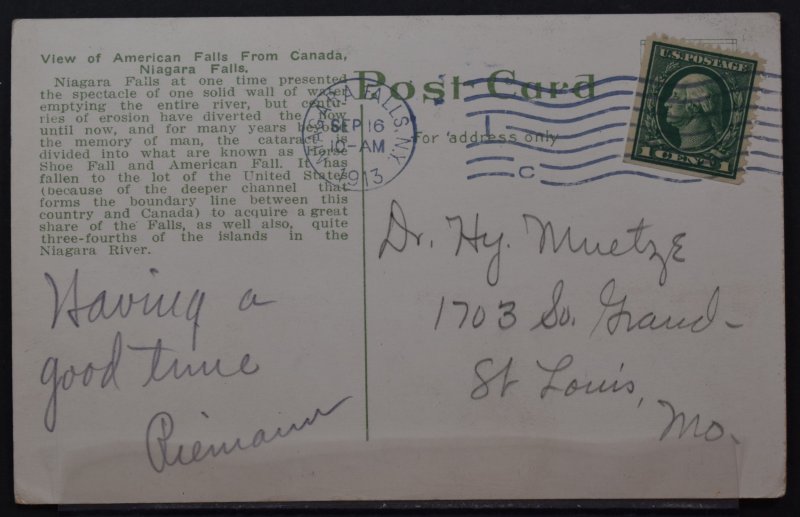 View of American Falls From Canada,
Niagara Falls.
Niagara Falls at one time presented
the spectacle of one solid wall of water
emptying the entire river, but centu-
ries of erosion have diverted the flow
until now, and for many years beyond
the memory of man, the cataract is
divided into what are known as Horse
Shoe Fall and American Fall. It has
fallen to the lot of the United States
(because of the deeper channel that
forms the boundary line between this
country and Canada) to acquire a great
share of the Falls, as well also, quite
three-fourths of the islands in the
Niagara River.
Having a
good time
Riemann
Post Card
For address only
NIAGARA FALLS, N.Y.
SEP 16
10-AM
1913
C
U.S. POSTAGE
1 CENT 1
Dr. Hy. Muetze
1703 So. Grand-
St Louis,
Mo.